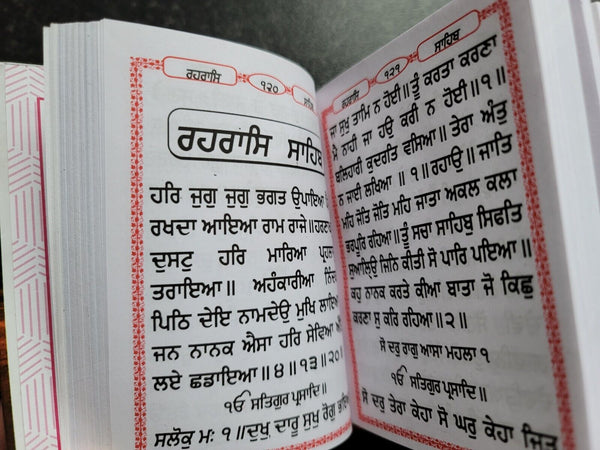 ਰਹਰਾਸਿ
੧੨੦
ਰਹਰਾਸਿ ਸਾਹਿਬ
ਹਰਿ ਜੁਗੁ ਜੁਗੁ ਭਗਤ ਉਪਾਇਆ
ਰਖਦਾ ਆਇਆ ਰਾਮ ਰਾਜੇ॥
ਦੁਸਟੁ ਹਰਿ ਮਾਰਿਆ
ਤਰਾਇਆ॥ ਅਹੰਕਾਰੀਆ
ਪਿਠਿ ਦੇਇ ਨਾਮਦੇਉ ਮੁਖਿ
ਜਨ ਨਾਨਕ ਐਸਾ ਹਰਿ ਸੇਵਿਆ
ਲਏ ਛਡਾਇਆ॥੪॥੧੩॥੨੦॥
ੴ ਸਤਿਗੁਰ ਪ੍ਰਸਾਦਿ॥
ਸਲੋਕੁ ਮਃ ੧॥ਦੁਖੁ ਦਾਰੂ ਸੁਖੁ ਰੋਗੁ
ਰਹਰਾਸਿ
੧੨੧
ਸਾਹਿਬ
ਜਾ ਸੁਖੁ ਤਾਮਿ ਨ ਹੋਈ॥ਤੂੰ ਕਰਤਾ ਕਰਣਾ
ਮੈ ਨਾਹੀ ਜਾ ਹਉ ਕਰੀ ਨ ਹੋਈ॥੧॥
ਬਲਿਹਾਰੀ ਕੁਦਰਤਿ ਵਸਿਆ॥ ਤੇਰਾ ਅੰਤੁ
ਨ ਜਾਈ ਲਖਿਆ ॥੧॥ ਰਹਾਉ॥ ਜਾਤਿ
ਮਹਿ ਜੋਤਿ ਜੋਤਿ ਮਹਿ ਜਾਤਾ ਅਕਲ ਕਲਾ
ਭਰਪੂਰਿ ਰਹਿਆ॥ਤੂੰ ਸਚਾ ਸਾਹਿਬੁ ਸਿਫਤਿ
ਸੁਆਲਿ੍ਉ ਜਿਨਿ ਕੀਤੀ ਸੋ ਪਾਰਿ ਪਇਆ॥
ਕਹੁ ਨਾਨਕ ਕਰਤੇ ਕੀਆ ਬਾਤਾ ਜੋ ਕਿਛੁ
ਕਰਣਾ ਸੁ ਕਰਿ ਰਹਿਆ॥੨॥
ਸੋ ਦਰੁ ਰਾਗੁ ਆਸਾ ਮਹਲਾ ੧
ੴ ਸਤਿਗੁਰ ਪ੍ਰਸਾਦਿ॥
ਸੋ ਦਰੁ ਤੇਰਾ ਕੇਹਾ ਸੋ ਘਰੁ ਕੇਹਾ ਜਿਤੁ